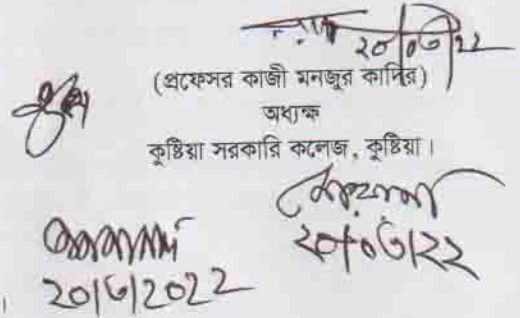 ২০/০৬/২২
(প্রফেসর কাজী মনজুর কাদির)
অধ্যক্ষ
কুষ্টিয়া সরকারি কলেজ, কুষ্টিয়া।
২০/০৬/২২
20/6/2022